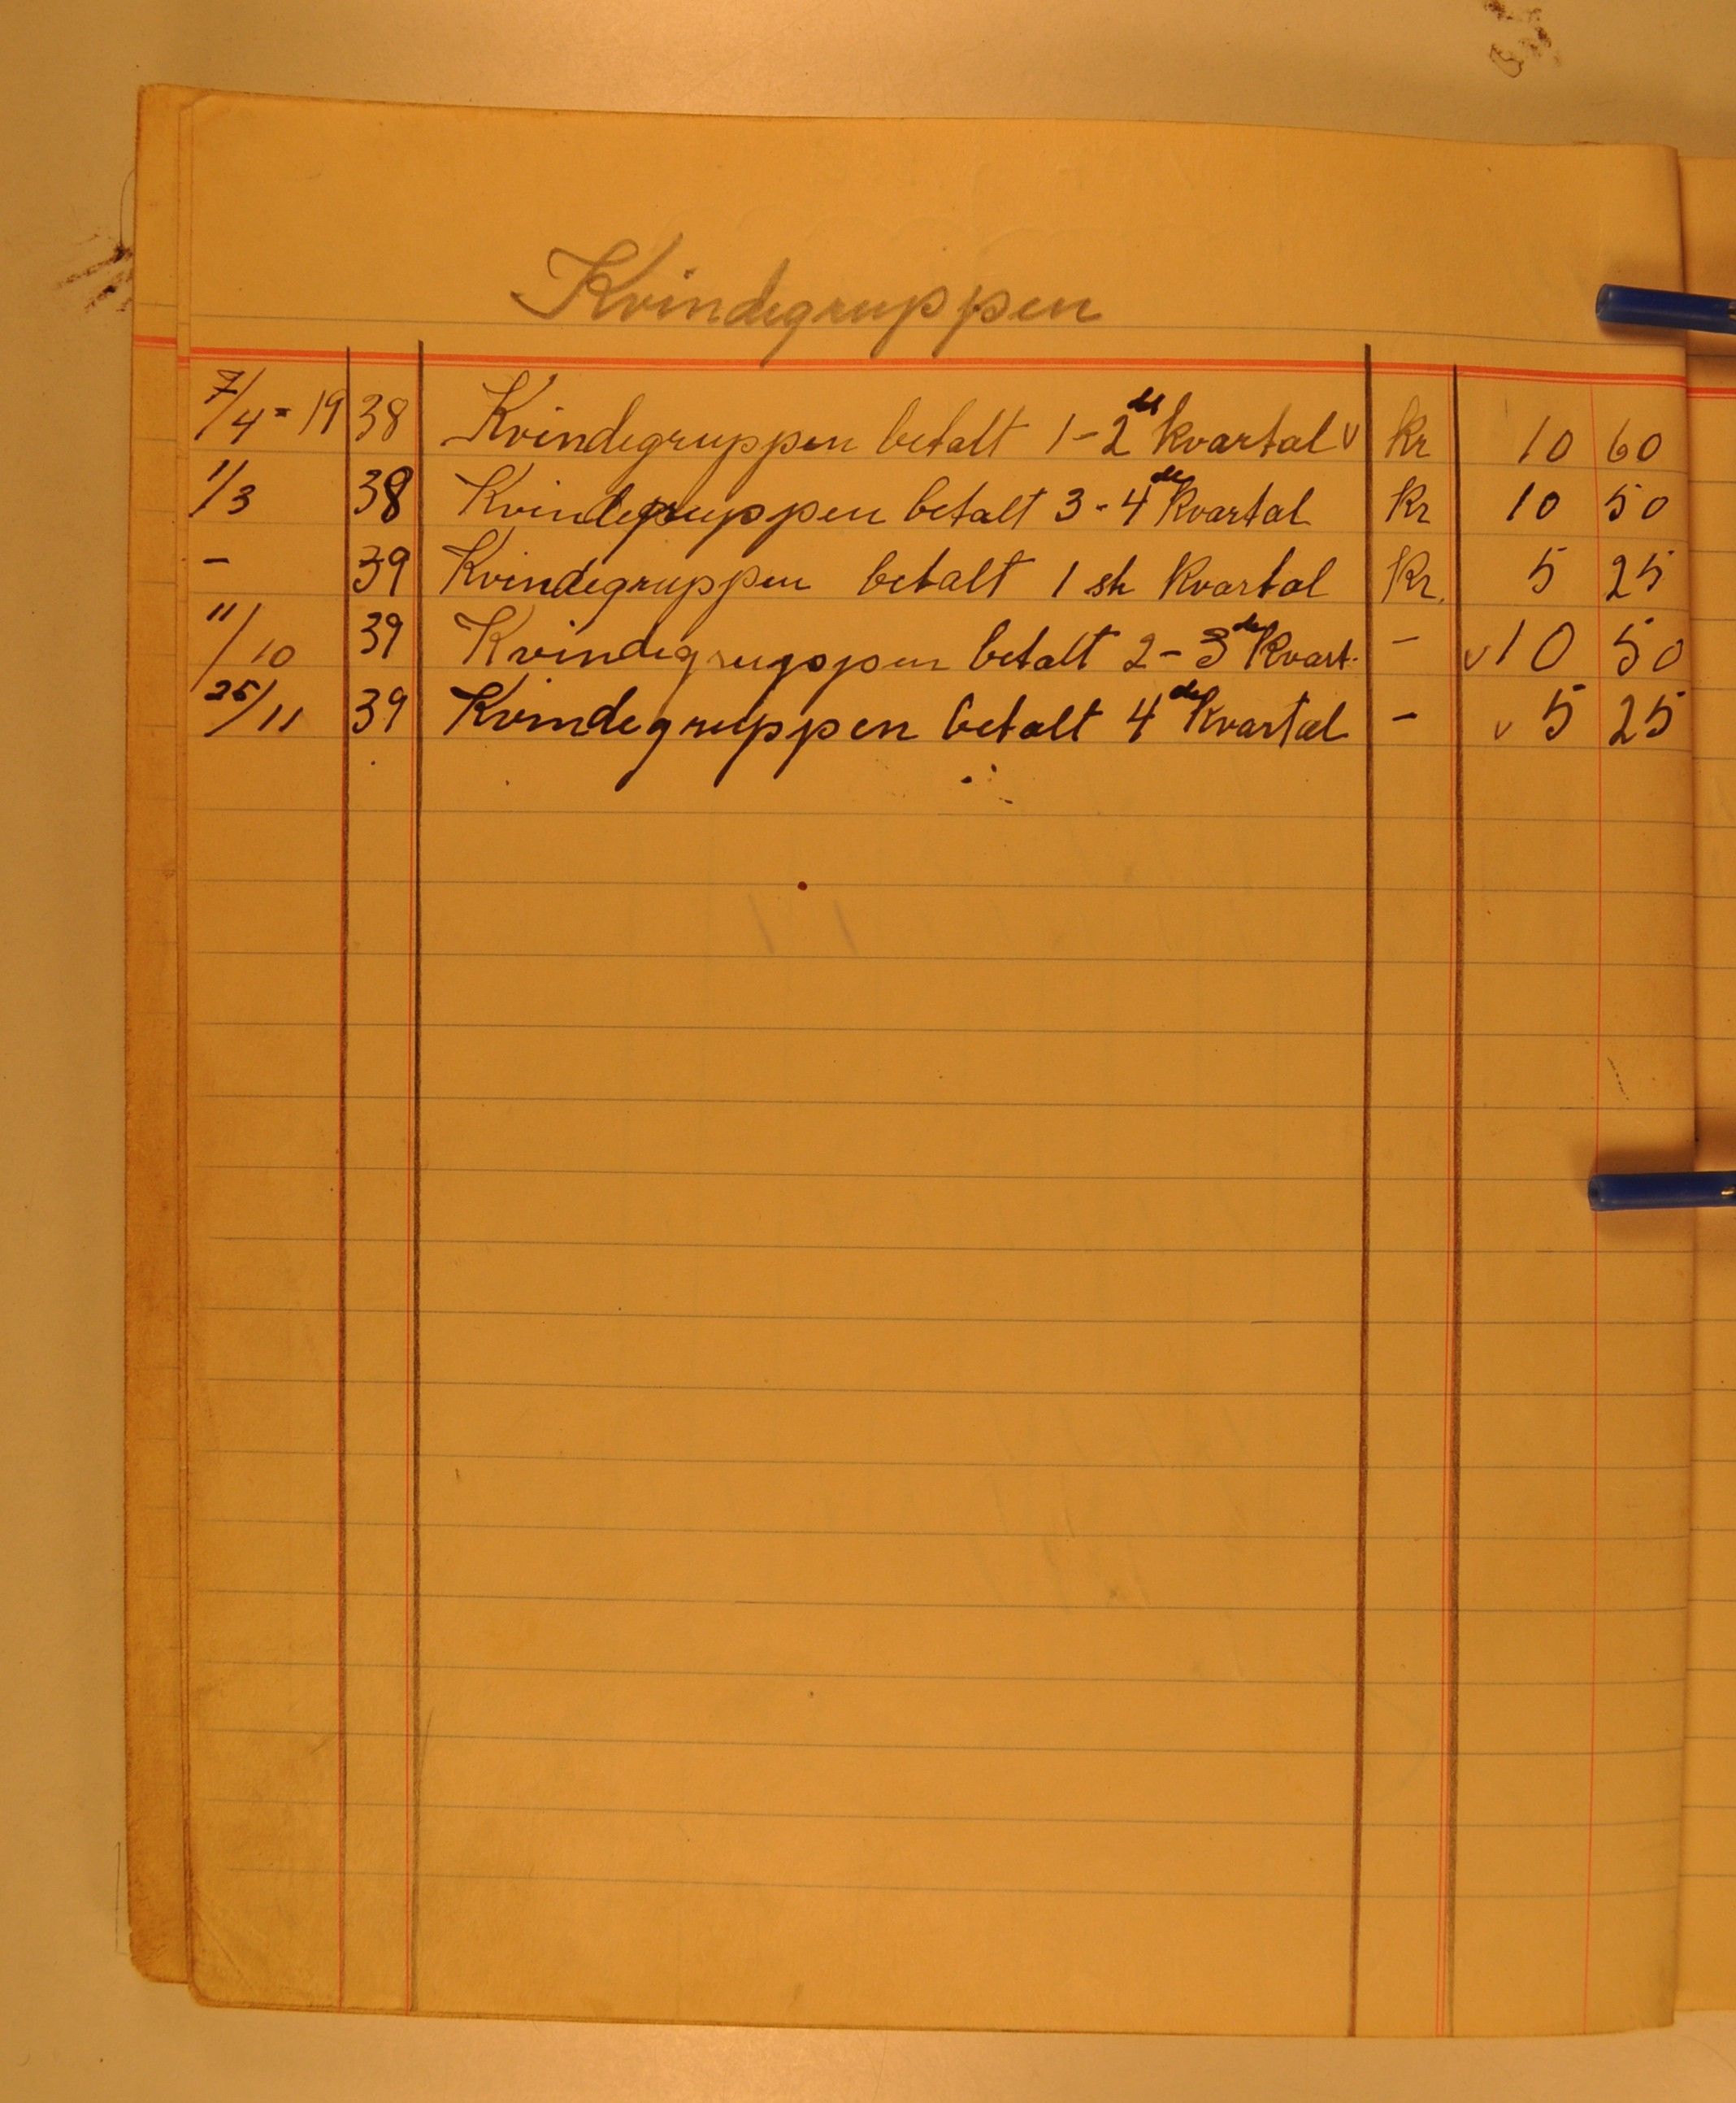 Kvindegruppen
7/4 - 19 38 Kvindegruppen betalt 1 - 2 de kvartal v kr 10 60
1/3 38 Kvindegruppen betalt 3 - 4 de kvartal kr 10 50
- 39 Kvindegruppen betalt 1 ste kvartal kr. 5 25
11/10 39 Kvindegruppen betalt 2 - 3 de kvart. - v 10 50
25/11 39 Kvindegruppen betalt 4 de kvartal - v 5 25